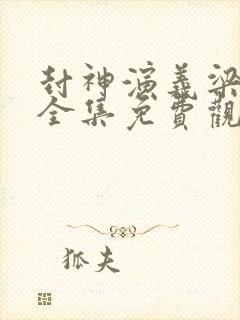 封神演義梁
全集免費觀
狐夫